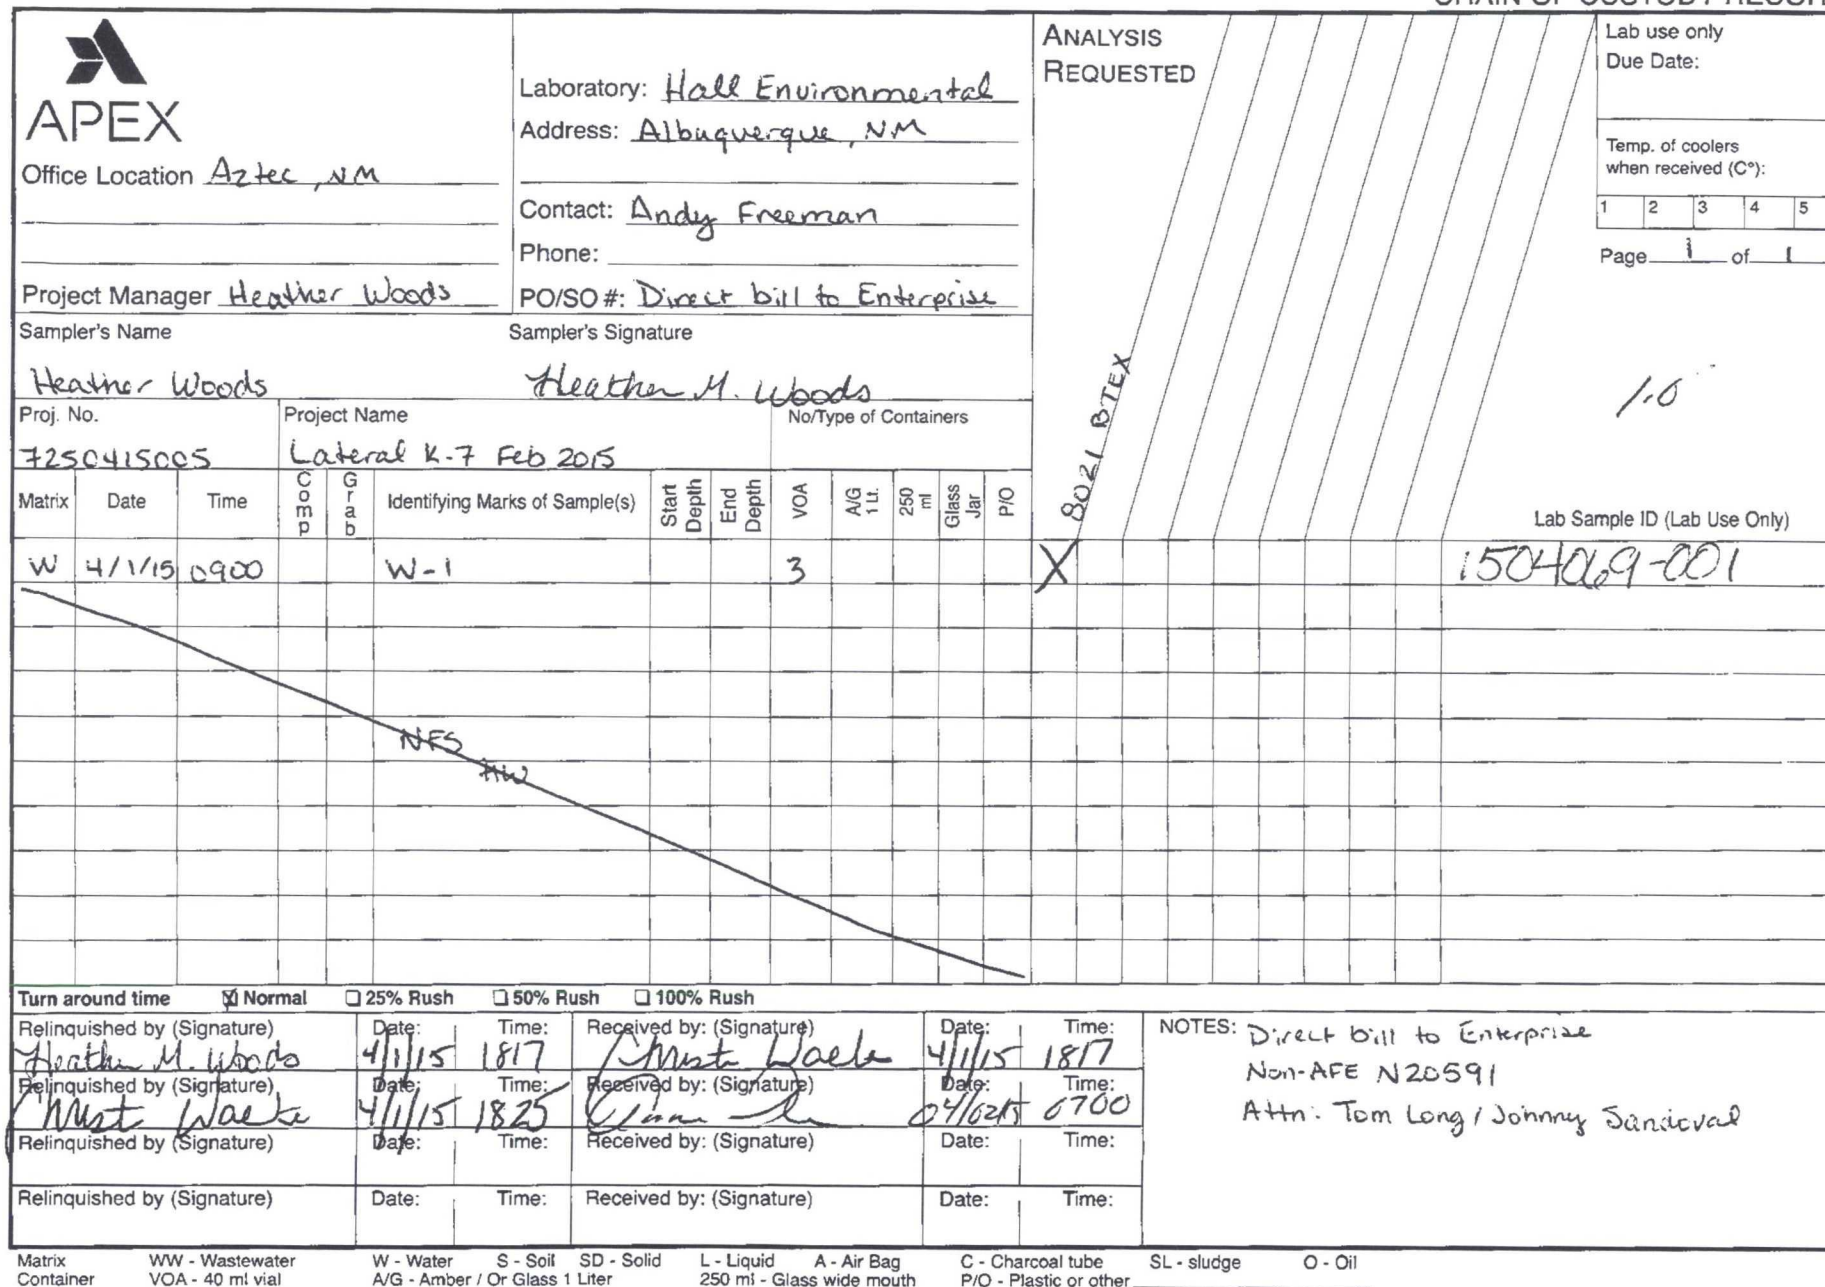 CHAIN OF CUSTODY RECORD
APEX
Office Location Aztec, NM
Project Manager Heather Woods
Laboratory: Hall Environmental
Address: Albuquerque, NM
Contact: Andy Freeman
Phone:
PO/SO #: Direct bill to Enterprise
ANALYSIS
REQUESTED
8021 BTEX
Lab use only
Due Date:
Temp. of coolers
when received (C°):
1 2 3 4 5
Page 1 of 1
1.0
Sampler's Name
Heather Woods
Sampler's Signature
Heather M. Woods
Proj. No.
7250415005
Project Name
Lateral K-7 Feb 2015
No/Type of Containers
Matrix Date Time Comp Grab Identifying Marks of Sample(s) Start Depth End Depth VOA A/G 1 Lt. 250 ml Glass Jar P/O Lab Sample ID (Lab Use Only)
W 4/1/15 0900 W-1 3 X 1504069-001
NFS
HW
Turn around time ☒ Normal ☐ 25% Rush ☐ 50% Rush ☐ 100% Rush
Relinquished by (Signature) Date: Time: Received by: (Signature) Date: Time:
Heather M. Woods 4/1/15 1817 4/1/15 1817
Relinquished by (Signature) Date: Time: Received by: (Signature) Date: Time:
4/1/15 1825 04/02/15 0700
Relinquished by (Signature) Date: Time: Received by: (Signature) Date: Time:
Relinquished by (Signature) Date: Time: Received by: (Signature) Date: Time:
NOTES: Direct bill to Enterprise
Non-AFE N20591
Attn: Tom Long / Johnny Sandoval
Matrix WW - Wastewater W - Water S - Soil SD - Solid L - Liquid A - Air Bag C - Charcoal tube SL - sludge O - Oil
Container VOA - 40 ml vial A/G - Amber / Or Glass 1 Liter 250 ml - Glass wide mouth P/O - Plastic or other